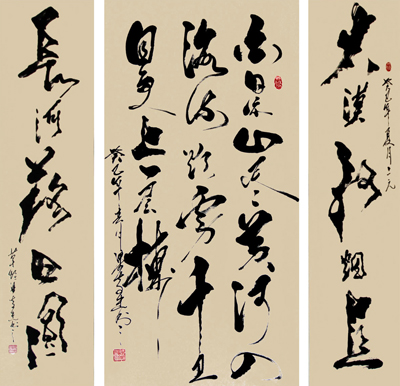 大漠孤烟直
癸巳年夏月
白日依山尽黄河入
海流欲穷千里
目更上一层樓
癸巳年
長河落日圓